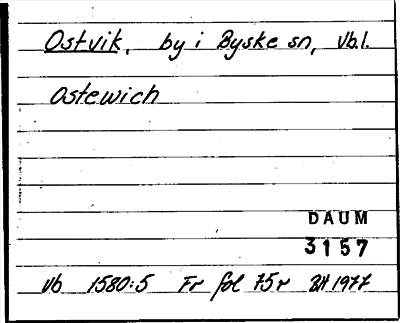 Ostvik, by i Byske sn, Vb l.
Ostewich
DAUM
3157
Vb 1580:5 Fr fol 75r BH 1977